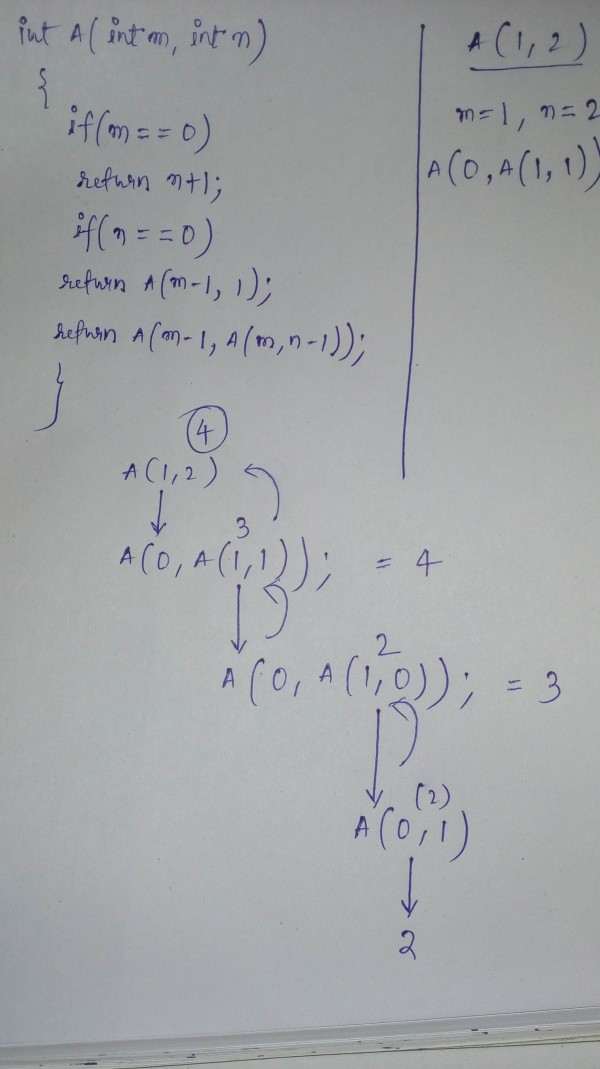 int A(int m, int n)
{
if(m==0)
return n+1;
if(n==0)
return A(m-1, 1);
return A(m-1, A(m,n-1));
}
A(1,2)
m=1, n=2
A(0,A(1,1))
4
A(1,2)
3
A(0, A(1,1)); = 4
2
A(0, A(1,0)); = 3
(2)
A(0,1)
2